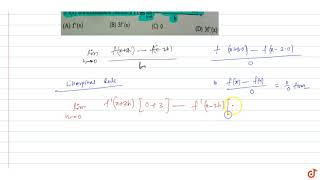 (A) f'(x) (B) 3f'(x) (C) 0 (D)
lim h→0 f(x+3h) − f(x−2h) / h
f(x+3·0) − f(x−2·0) / 0
Rule
f(x) − f(x) / 0 = 0/0 form
lim h→0 f'(x+3h) [0+3] − f'(x−2h) [